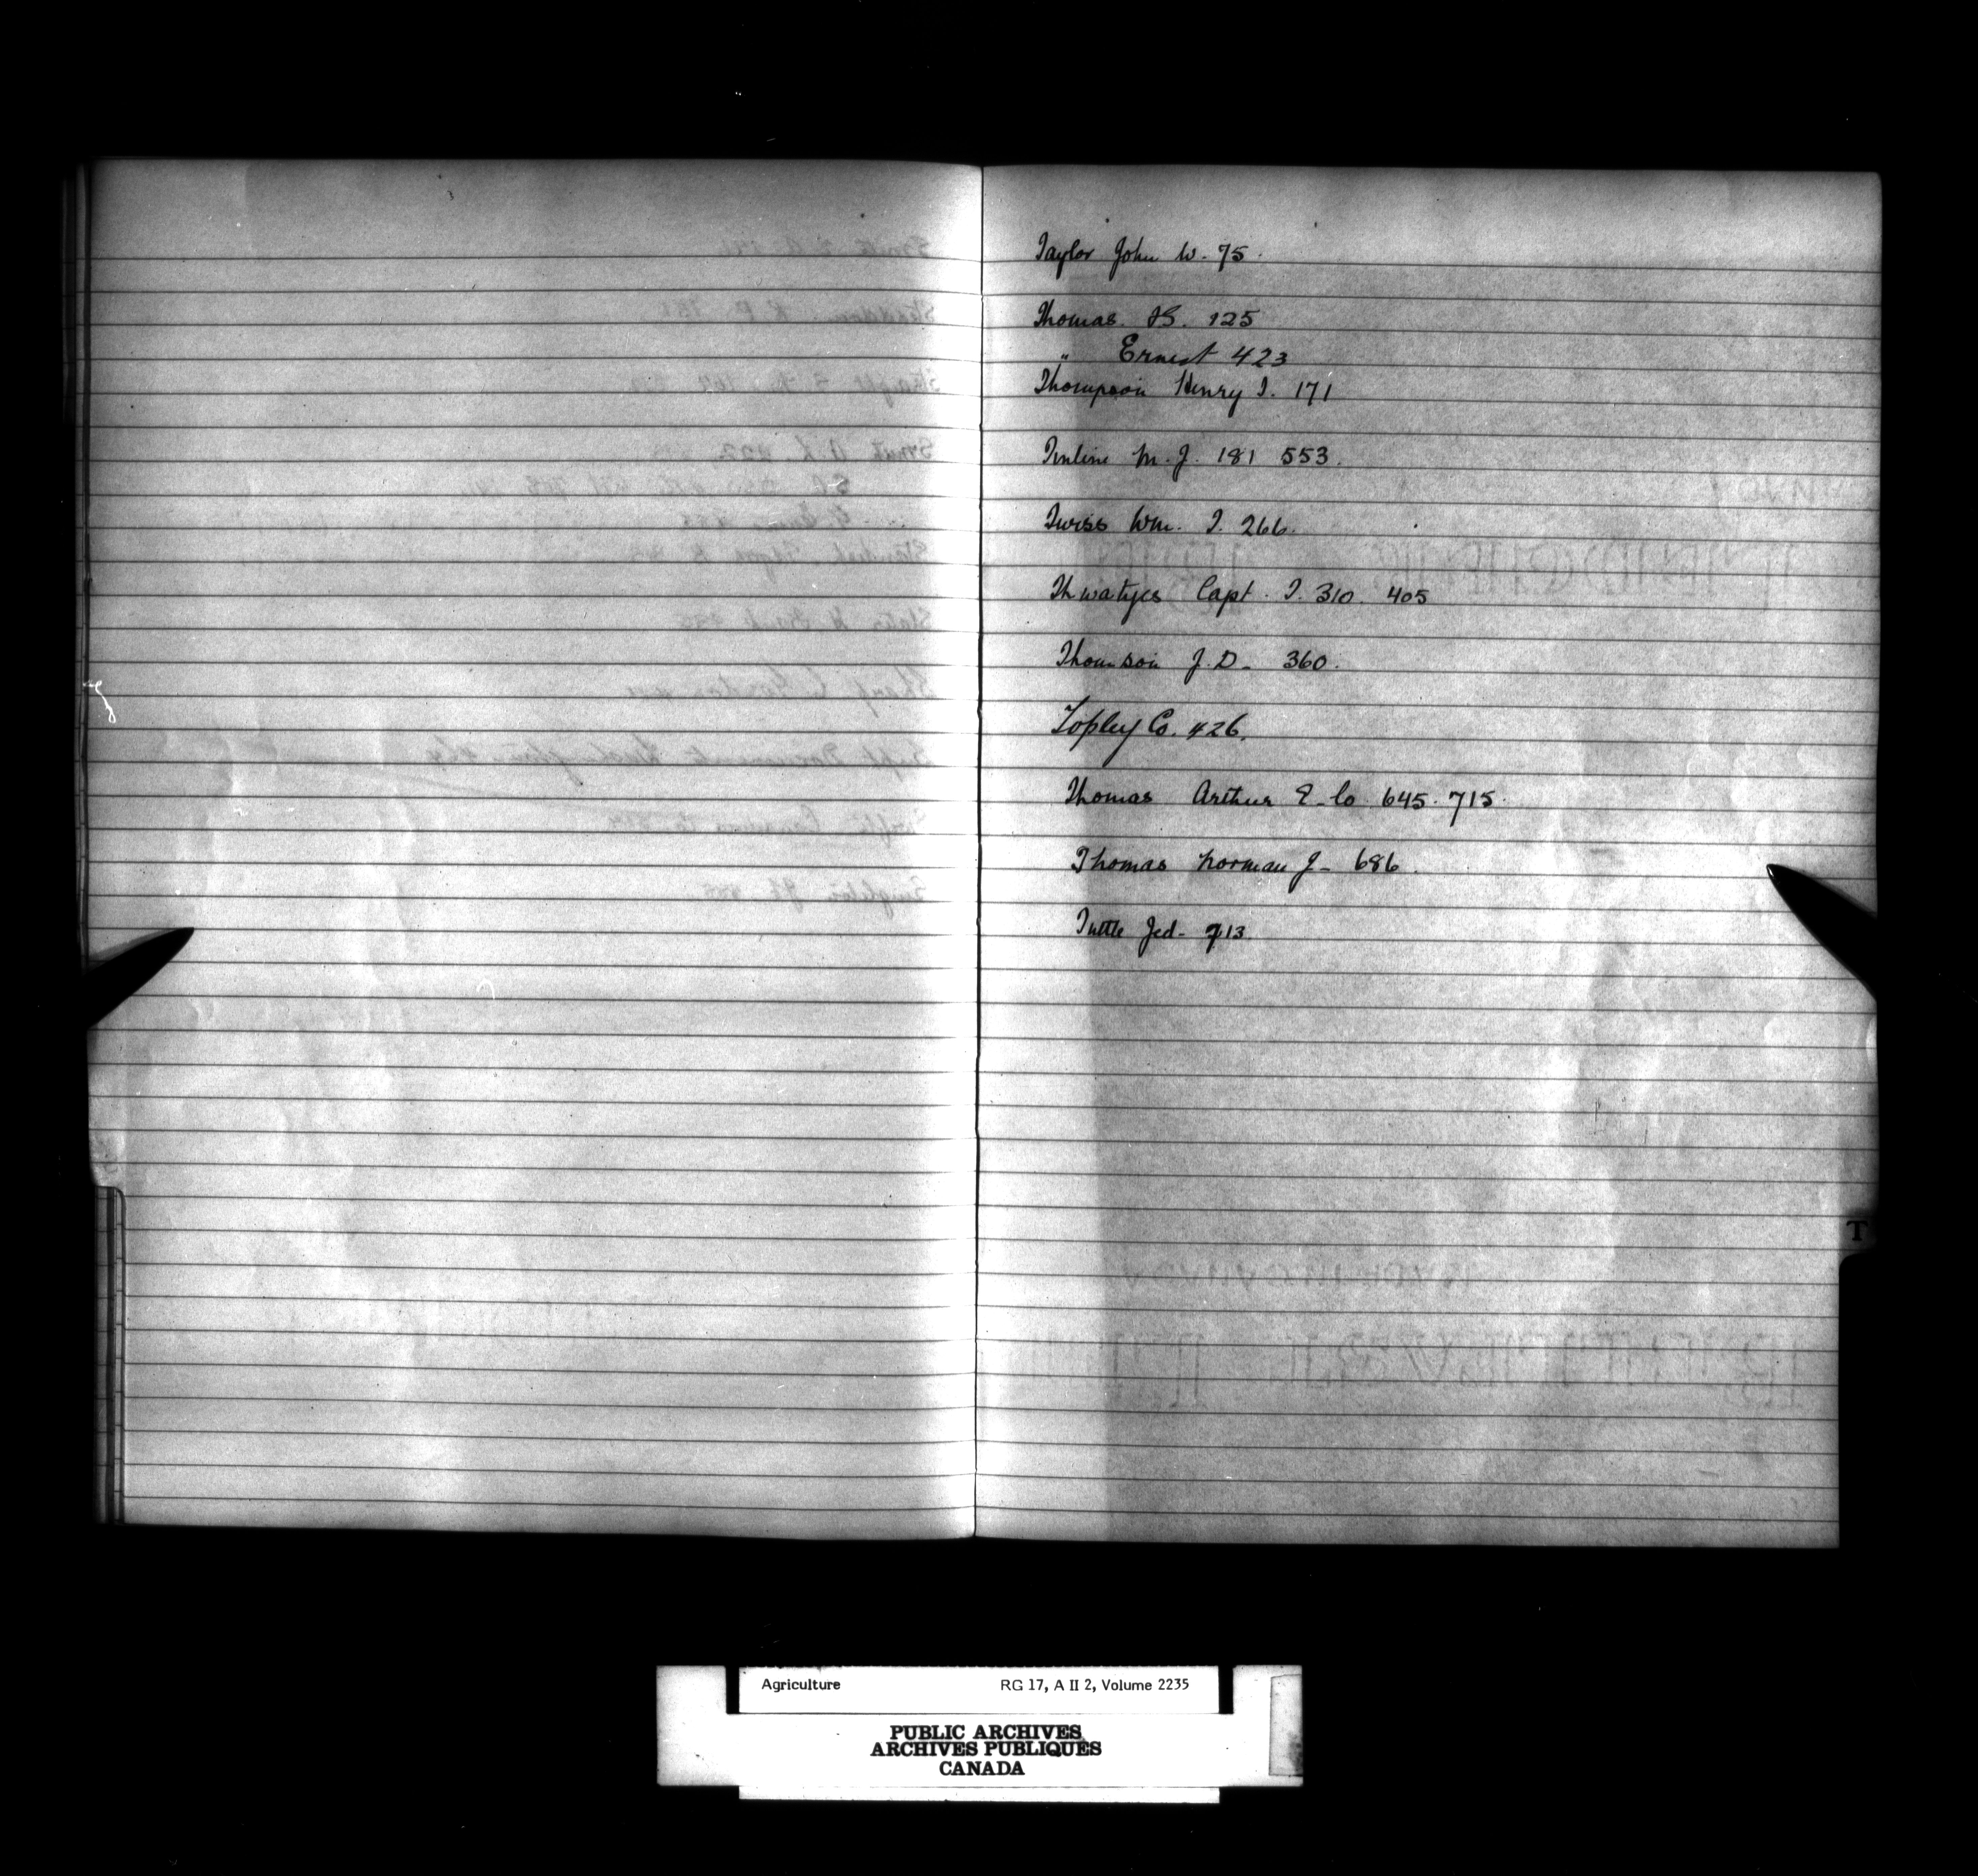 Taylor John W. 75.
Thomas. 125
" Ernest 423
Thompson Henry T. 171
M. J. 181 553.
Twiss Wm. T. 266.
Thwatyes Capt. T. 310. 405
Thomson J. D. 360.
Topley Co. 426.
Thomas Arthur E. Co 645. 715.
Thomas Norman J- 686.
Tuttle Jed- 713
T
Agriculture RG 17, A II 2, Volume 2235
PUBLIC ARCHIVES
ARCHIVES PUBLIQUES
CANADA